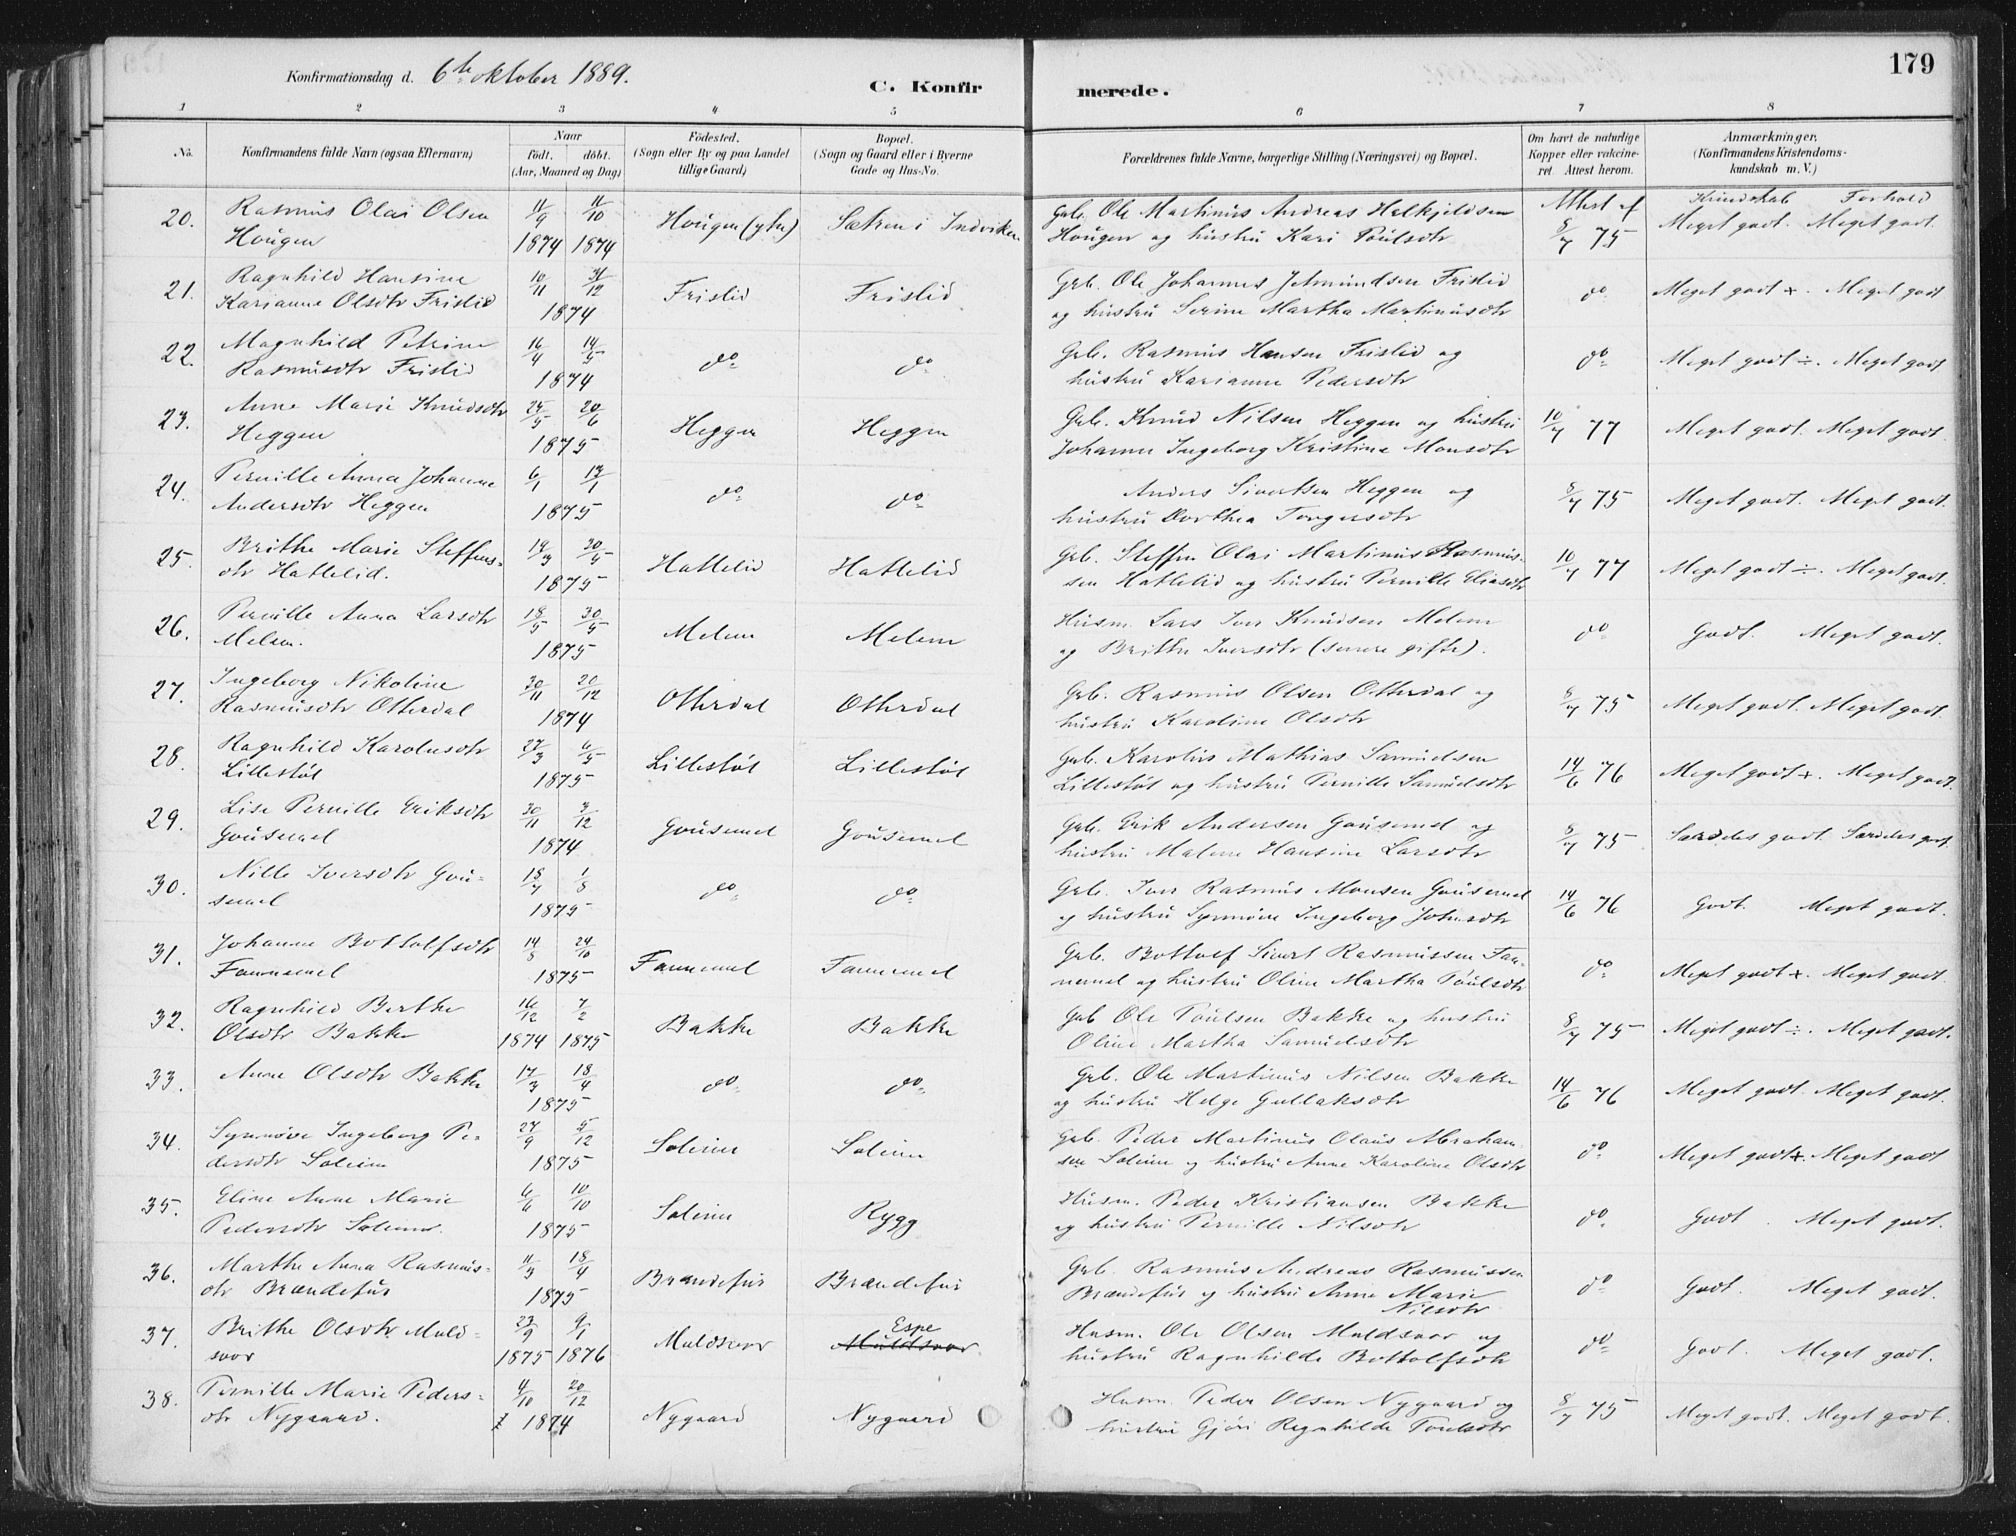 Konfirmationsdag d. 6te oktober 1889.
C. Konfir merede.
179
1 2 3 4 5 6 7 8
No. Konfirmandens fulde Navn (ogsaa Efternavn) Naar født. døbt. (Aar, Maaned og Dag) Fødested. (Sogn eller By og paa Landet tillige Gaard) Bopæl. (Sogn og Gaard eller i Byerne Gade og Hus-No. Forældrenes fulde Navne, borgerlige Stilling (Næringsvei) og Bopæl. Om havt de naturlige Kopper eller vakcineret. Attest herom. Anmærkninger. (Konfirmandens Kristendomskundskab m. V.)
20. Rasmus Olai Olsen 11/9 11/10 Hougen (ytre) Sætren i Indviken Grb. Ole Martinus Andreas Helkjeldsen Attest af Kundskab Forhold
Hougen 1874 1874 Hougen og hustru Kari Poulsdtr 8/7 75 Meget godt. Meget godt.
21. Ragnhild Hansine 10/11 31/12 Frislid Frislid Grb. Ole Johannes Jetmundsen Frislid do Meget godt +. Meget godt
Karianne Olsdtr Frislid 1874 og hustru Serine Martha Martinusdtr
22. Magnhild Petrine 16/4 14/5 do do Grb. Rasmus Hansen Frislid og do Meget godt ÷. Meget godt
Rasmusdtr Frislid 1874 hustru Karianne Pedersdtr
23. Anne Marie Knudsdtr 25/5 20/6 Heggen Heggen Grb. Knud Nilsen Heggen og hustru 10/7 77 Meget godt. Meget godt.
Heggen 1875 Johanne Ingeborg Kristine Monsdtr
24. Pernille Anna Johanne 6/1 17/1 do do Anders Sivertsen Heggen og 8/7 75 Meget godt. Meget godt.
Andersdtr Heggen 1875 hustru Dorthea Torgersdtr
25. Brithe Marie Steffens- 19/3 20/5 Hatlelid Hatlelid Grb. Steffen Olai Martinus Rasmus- 10/7 77 Meget godt ÷. Meget godt.
dtr Hatlelid. 1875 sen Hatlelid og hustru Pernille Eliasdtr
26. Pernille Anna Larsdtr 18/5 30/5 Melem Melem Husm. Lars Iver Knudsen Melem do Godt. Meget godt.
Melem. 1875 og Brithe Iversdtr (senere gifte).
27. Ingeborg Nikoline 30/11 20/12 Otterdal Otterdal Grb. Rasmus Olsen Otterdal og 8/7 75 Meget godt. Meget godt.
Rasmusdtr Otterdal 1874 hustru Karoline Olsdtr
28. Ragnhild Karolusdtr 27/3 6/5 Lillestøl Lillestøl Grb. Karolus Mathias Samuelsen 14/6 76 Meget godt +. Meget godt.
Lillestøl 1875 Lillestøl og hustru Pernille Samuelsdtr
29. Lise Pernille Eriksdtr 30/11 3/12 Gousemel Gousemel Grb. Erik Andersen Gousemel og 8/7 75 Særdeles godt Særdeles godt.
Gousemel 1874 hustru Malene Hansine Larsdtr
30. Nille Iversdtr Gou- 18/7 1/8 do do Grb. Iver Rasmus Monsen Gousemel 14/6 76 Godt. Meget godt.
semel 1875 og hustru Synnøve Ingeborg Johnsdtr
31. Johanne Bottolfsdtr 14/8 24/10 Fannemel Fannemel Grb. Bottolf Sivert Rasmussen Fan- do Meget godt +. Meget godt.
Fannemel 1875 nemel og hustru Oline Martha Poulsdtr
32. Ragnhild Berthe 16/12 7/2 Bakke Bakke Grb Ole Poulsen Bakke og hustru 8/7 75 Meget godt ÷. Meget godt.
Olsdtr Bakke 1874 1875 Oline Martha Samuelsdtr
33. Anne Olsdtr Bakke 17/3 18/4 do do Grb. Ole Martinus Nilsen Bakke 14/6 76 Meget godt. Meget godt.
1875 og hustru Helge Gullaksdtr
34. Synnøve Ingeborg Pe- 27/9 5/12 Soleim Soleim Grb. Peder Martinus Olaus Abraham- do Meget godt +. Meget godt
dersdtr Soleim 1875 sen Soleim og hustru Anne Karoline Olsdtr
35. Eline Anne Marie 6/6 10/10 Soleim Rygg Husm. Peder Kristiansen Bakke do Godt. Meget godt.
Pedersdtr Soleim. 1875 og hustru Pernille Nilsdtr
36. Marthe Anna Rasmus- 11/3 18/4 Brændefur Brændefur Grb. Rasmus Andreas Rasmussen do Godt. Meget godt.
dtr Brændefur 1875 Brændefur og hustru Anne Marie
Nilsdtr
37. Brithe Olsdtr Muld- 23/9 9/1 Muldsvor Espe Muldsvor Husm. Ole Olsen Muldsvor og do Godt. Meget godt.
svor 1875 1876 hustru Ragnhilde Bottolfsdtr
38. Pernille Marie Peders- 4/10 20/12 Nygaard Nygaard Husm. Peder Olsen Nygaard og 8/7 75 Meget godt. Meget godt.
dtr Nygaard. 1874 hustru Gjøri Regnhilde Poulsdtr